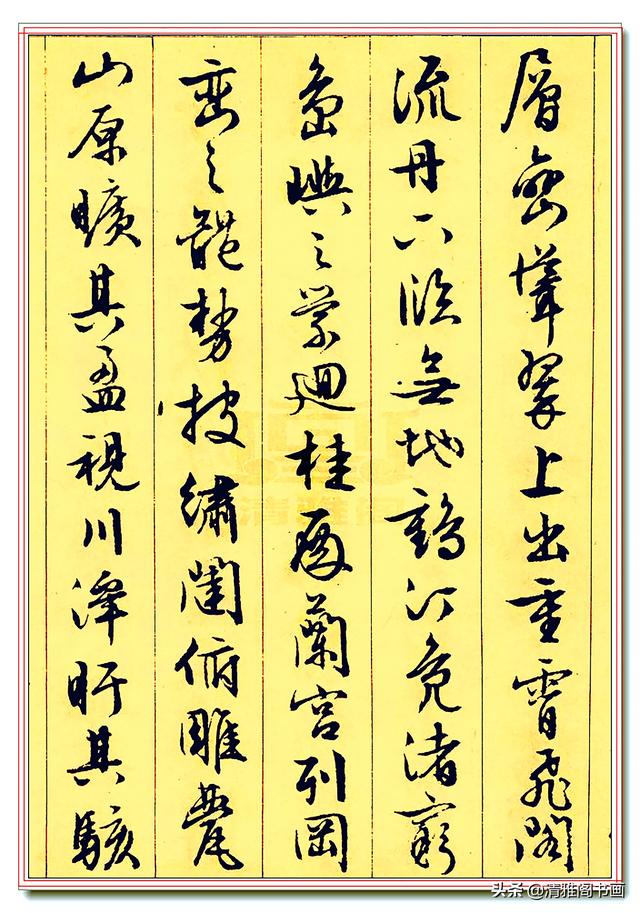 層巒聳翠上出重霄飛閣
流丹下臨無地鶴汀鳧渚窮
島嶼之縈迴桂殿蘭宮列岡
巒之體勢披繡闥俯雕甍
山原曠其盈視川澤盱其駭
清雅阁
头条 @清雅阁书画